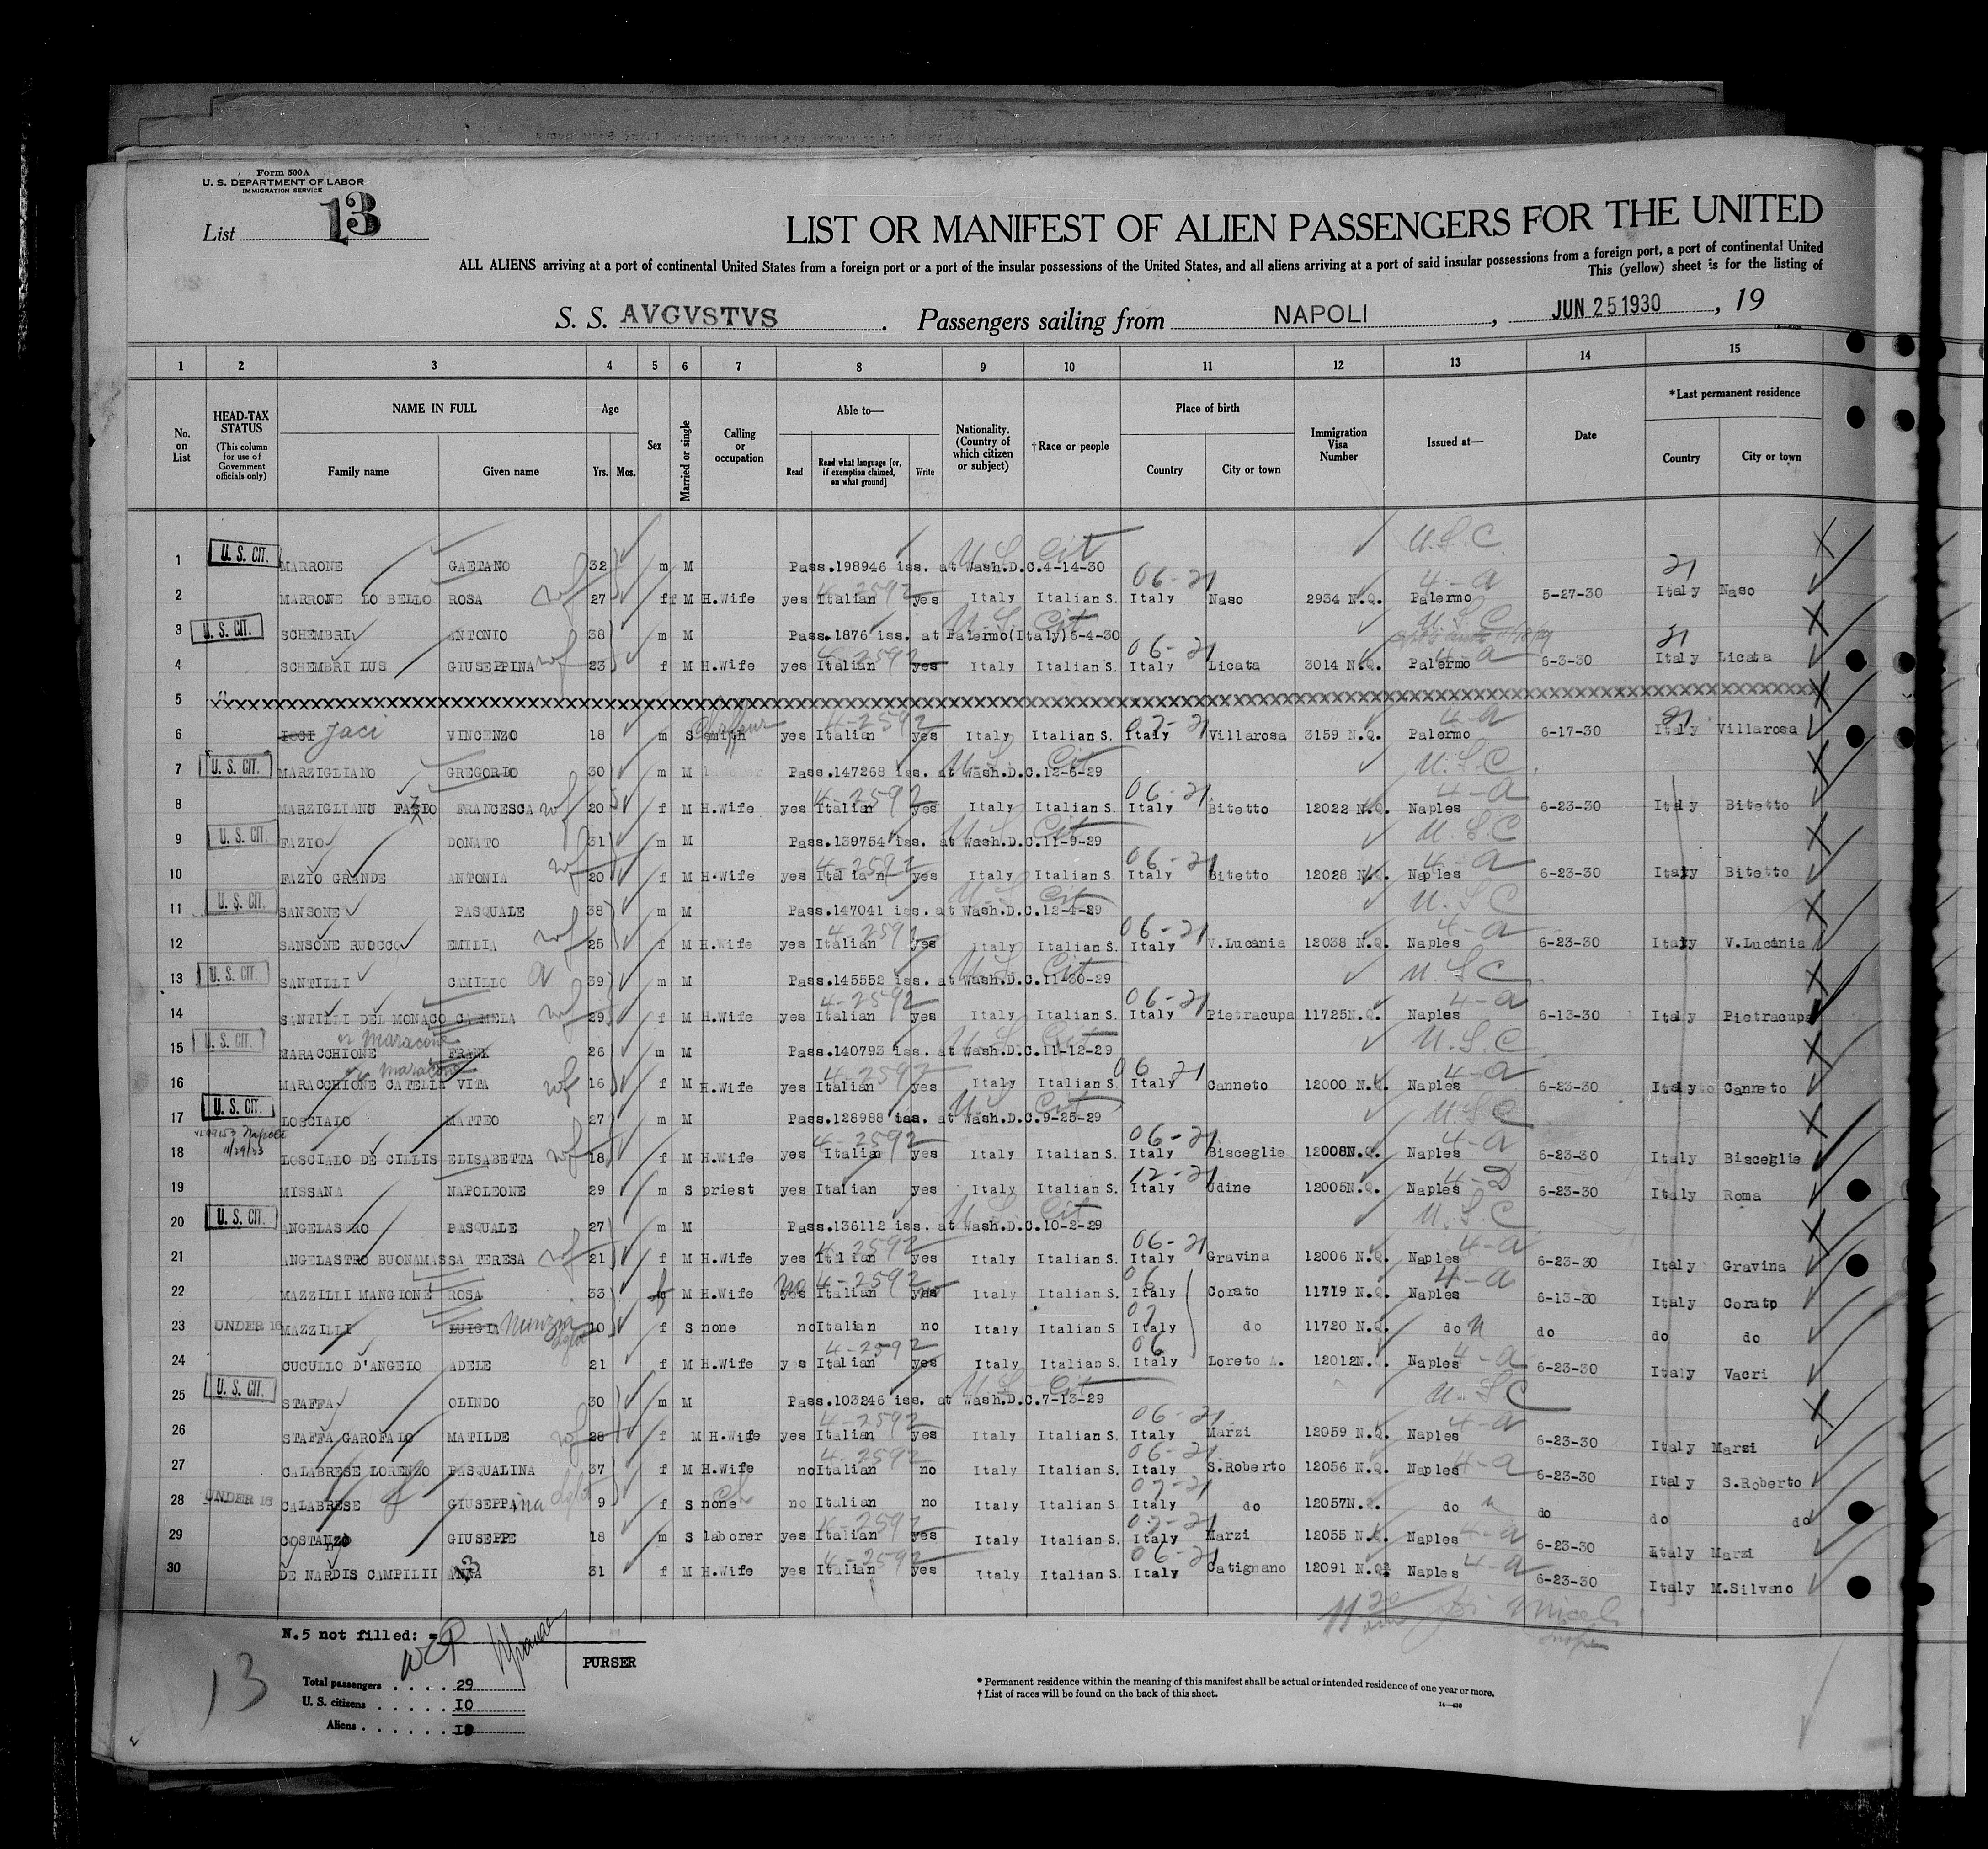 Form 500A
U. S. DEPARTMENT OF LABOR
IMMIGRATION SERVICE
List 13
LIST OR MANIFEST OF ALIEN PASSENGERS FOR THE UNITED
ALL ALIENS arriving at a port of continental United States from a foreign port or a port of the insular possessions of the United States, and all aliens arriving at a port of said insular possessions from a foreign port, a port of continental United
This (yellow) sheet is for the listing of
S. S. AVGVSTVS . Passengers sailing from NAPOLI , JUN 25 1930 , 19
1 2 3 4 5 6 7 8 9 10 11 12 13 14 15
No. on List
HEAD-TAX STATUS (This column for use of Government officials only)
NAME IN FULL Family name Given name
Age Yrs. Mos.
Sex
Married or single
Calling or occupation
Able to— Read Read what language [or, if exemption claimed, on what ground] Write
Nationality. (Country of which citizen or subject)
†Race or people
Place of birth Country City or town
Immigration Visa Number
Issued at—
Date
*Last permanent residence Country City or town
1 U. S. CIT. MARRONE GAETANO 32 m M Pass.198946 iss. at Wash.D.C.4-14-30 U.S. Cit U.S.C.
2 MARRONE LO BELLO ROSA wf 27 f M H.Wife yes Italian 4-2592 yes Italy Italian S. Italy 06-21 Naso 2934 N.Q. Palermo 4-a 5-27-30 Italy 21 Naso
3 U. S. CIT. SCHEMBRI ANTONIO 38 m M Pass.1876 iss. at Palermo(Italy)6-4-30 U.S. Cit U.S.C
4 SCHEMBRI LUS GIUSEPPINA wf 23 f M H.Wife yes Italian 4-2592 yes Italy Italian S. Italy 06-21 Licata 3014 N.Q. Palermo 4-a 6-3-30 Italy 21 Licata
5 xxxxxxxxxxxxxxxxxxxxxxxxxxxxxxxxxxxxxxxx
6 IOCI Jaci VINCENZO 18 m S smith yes Italian 4-2592 yes Italy Italian S. Italy 07-21 Villarosa 3159 N.Q. Palermo 4-a 6-17-30 Italy 21 Villarosa
7 U. S. CIT. MARZIGLIANO GREGORIO 30 m M Pass.147268 iss. at Wash.D.C.12-6-29 U.S. Cit U.S.C.
8 MARZIGLIANO FAZIO FRANCESCA wf 20 f M H.Wife yes Italian 4-2592 yes Italy Italian S. Italy 06-21 Bitetto 12022 N.Q. Naples 4-a 6-23-30 Italy Bitetto
9 U. S. CIT. FAZIO DONATO 31 m M Pass.139754 iss. at Wash.D.C.11-9-29 U.S. Cit U.S.C
10 FAZIO GRANDE ANTONIA wf 20 f M H.Wife yes Italian 4-2592 yes Italy Italian S. Italy 06-21 Bitetto 12028 N.Q. Naples 4-a 6-23-30 Italy Bitetto
11 U. S. CIT. SANSONE PASQUALE 38 m M Pass.147041 iss. at Wash.D.C.12-4-29 U.S. Cit U.S.C
12 SANSONE RUOCCO EMILIA wf 25 f M H.Wife yes Italian 4-2592 yes Italy Italian S. Italy 06-21 V.Lucania 12038 N.Q. Naples 4-a 6-23-30 Italy V.Lucania
13 U. S. CIT. SANTILLI CAMILLO a 39 m M Pass.145552 iss. at Wash.D.C.11-30-29 U.S. Cit U.S.C
14 SANTILLI DEL MONACO CARMELA wf 29 f M H.Wife yes Italian 4-2592 yes Italy Italian S. Italy 06-21 Pietracupa 11725N.Q. Naples 4-a 6-13-30 Italy Pietracupa
15 U. S. CIT. MARACCHIONE or Maracone FRANK 26 m M Pass.140793 iss. at Wash.D.C.11-12-29 U.S. Cit U.S.C.
16 MARACCHIONE CATELLI VITA wf 16 f M H.Wife yes Italian 4-2592 yes Italy Italian S. Italy 06-21 Canneto 12000 N.Q. Naples 4-a 6-23-30 Italy Canneto
17 U. S. CIT. LOSCIALO MATTEO 27 m M Pass.128988 iss. at Wash.D.C.9-25-29 U.S. Cit U.S.C
18 Napoli 11/29/33 LOSCIALO DE CILLIS ELISABETTA wf 18 f M H.Wife yes Italian 4-2592 yes Italy Italian S. Italy 06-21 Bisceglie 12008N.Q. Naples 4-a 6-23-30 Italy Bisceglie
19 MISSANA NAPOLEONE 29 m S priest yes Italian yes Italy Italian S. Italy 12-21 Udine 12005N.Q. Naples 4-D 6-23-30 Italy Roma
20 U. S. CIT. ANGELASTRO PASQUALE 27 m M Pass.136112 iss. at Wash.D.C.10-2-29 U.S. Cit U.S.C.
21 ANGELASTRO BUONAMASSA TERESA wf 21 f M H.Wife yes Italian 4-2592 yes Italy Italian S. Italy 06-21 Gravina 12006 N.Q. Naples 4-a 6-23-30 Italy Gravina
22 MAZZILLI MANGIONE ROSA 33 f M H.Wife yes no Italian 4-2592 yes no Italy Italian S. Italy 06 Corato 11719 N.Q. Naples 4-a 6-13-30 Italy Corato
23 UNDER 16 MAZZILLI LUIGIA Nunzia 10 f S none no Italian no Italy Italian S. Italy 07 do 11720 N.Q. do n do do do
24 CUCULLO D'ANGELO ADELE 21 f M H.Wife yes Italian 4-2592 yes Italy Italian S. Italy 06 Loreto A. 12012N.Q. Naples 4-a 6-23-30 Italy Vacri
25 U. S. CIT. STAFFA OLINDO 30 m M Pass.103246 iss. at Wash.D.C.7-13-29 U.S. Cit U.S.C
26 STAFFA GAROFALO MATILDE wf 28 f M H.Wife yes Italian 4-2592 yes Italy Italian S. Italy 06-21 Marzi 12059 N.Q. Naples 4-a 6-23-30 Italy Marzi
27 CALABRESE LORENZO PASQUALINA 37 f M H.Wife no Italian 4-2592 no Italy Italian S. Italy 06-21 S.Roberto 12056 N.Q. Naples 4-a 6-23-30 Italy S.Roberto
28 UNDER 16 CALABRESE GIUSEPPina 9 f S none no Italian no Italy Italian S. Italy 07-21 do 12057N.Q. do n do do do
29 COSTANZO GIUSEPPE 18 m S laborer yes Italian 4-2592 yes Italy Italian S. Italy 07-21 Marzi 12055 N.Q. Naples 4-a 6-23-30 Italy Marzi
30 DE NARDIS CAMPILII ANNA 31 f M H.Wife yes Italian 4-2592 yes Italy Italian S. Italy 06-21 Catignano 12091 N.Q. Naples 4-a 6-23-30 Italy M.Silvano
N.5 not filled: =
PURSER
13
Total passengers . . . . 29
U. S. citizens . . . . . 10
Aliens . . . . . . 19
* Permanent residence within the meaning of this manifest shall be actual or intended residence of one year or more.
† List of races will be found on the back of this sheet.
14—430